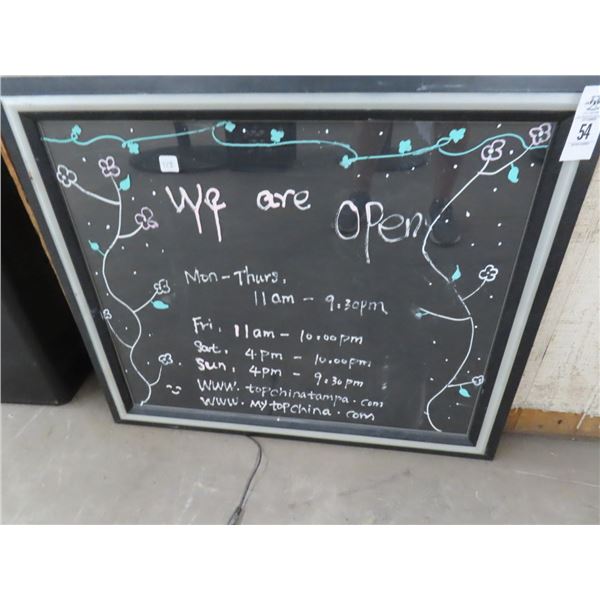 54
We are open
Mon - Thurs.
11am - 9:30pm
Fri. 11am - 10:00pm
Sat. 4pm - 10:00pm
Sun. 4pm - 9:30pm
www.topchinatampa.com
www.mytopchina.com